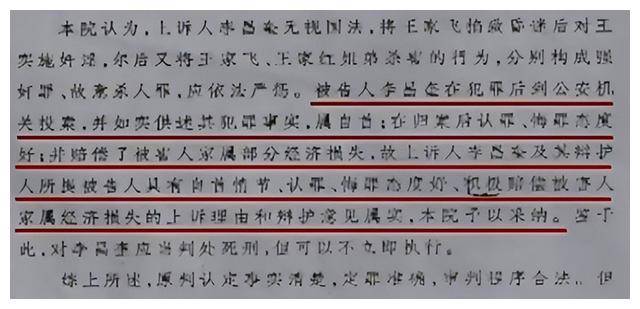 本院认为，上诉人李昌奎无视国法，将王家飞掐致昏迷后对王
实施奸淫，尔后又将王家飞、王家红姐弟杀害的行为，分别构成强
奸罪、故意杀人罪，应依法严惩。被告人李昌奎在犯罪后到公安机
关投案，并如实供述其犯罪事实，属自首；在归案后认罪、悔罪态度
好；并赔偿了被害人家属部分经济损失，故上诉人李昌奎及其辩护
人所提被告人具有自首情节、认罪、悔罪态度好、积极赔偿被害人
家属经济损失的上诉理由和辩护意见属实，本院予以采纳。鉴于
此，对李昌奎应当判处死刑，但可以不立即执行。
综上所述，原判认定事实清楚，定罪准确，审判程序合法。但